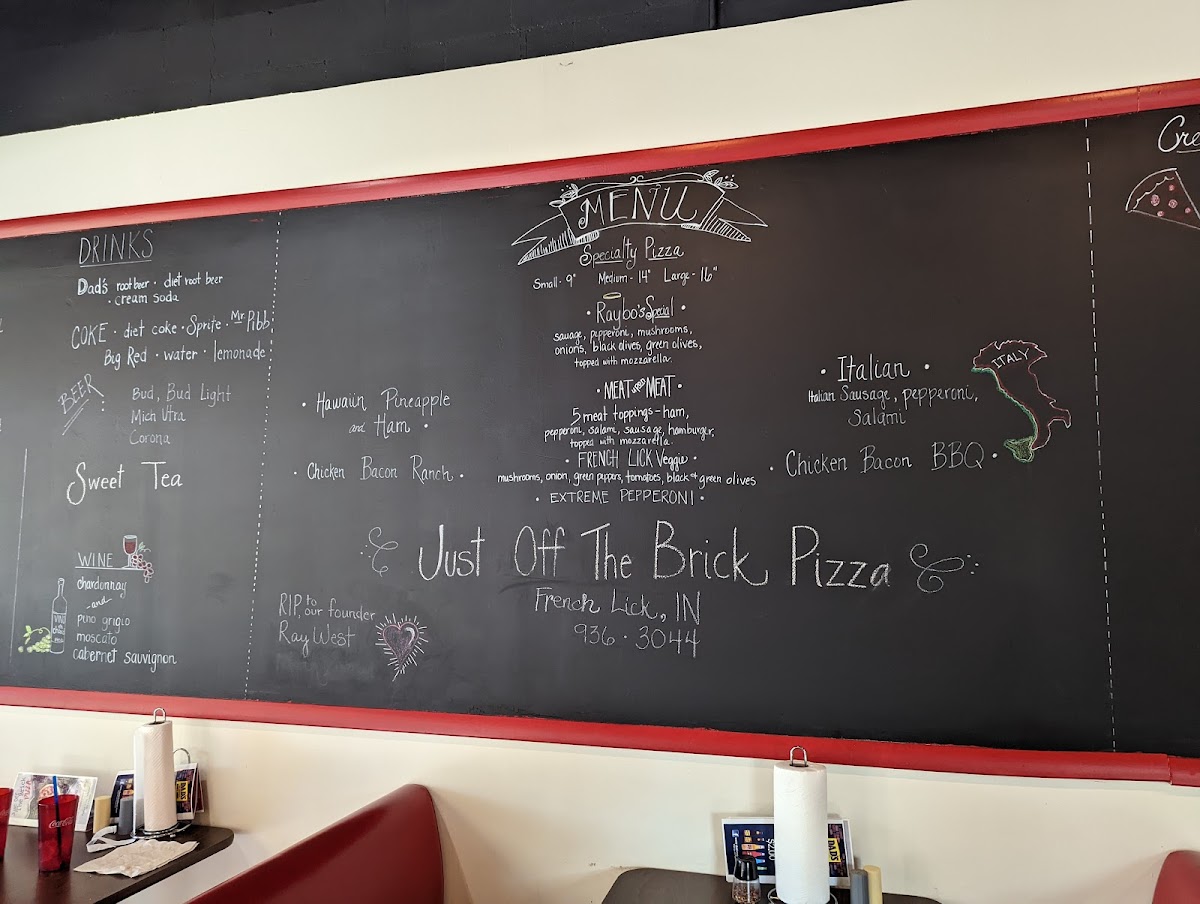 DRINKS
Dad's root beer · diet root beer
· cream soda
COKE · diet coke · Sprite · Mr. Pibb
Big Red · water · lemonade
BEER
Bud, Bud Light
Mich Utra
Corona
Sweet Tea
WINE
chardonnay
-and-
pino grigio
moscato
cabernet sauvignon
MENU
Specialty Pizza
Small - 9" Medium - 14" Large - 16"
· Raybo's Special ·
sausage, pepperoni, mushrooms,
onions, black olives, green olives,
topped with mozzarella.
· MEAT MEAT ·
5 meat toppings - ham,
pepperoni, salami, sausage, hamburger,
topped with mozzarella.
· FRENCH LICK Veggie ·
mushrooms, onion, green peppers, tomatoes, black & green olives
· EXTREME PEPPERONI ·
· Hawaiin Pineapple
and Ham ·
· Chicken Bacon Ranch ·
· Italian ·
Italian Sausage, pepperoni,
Salami
ITALY
· Chicken Bacon BBQ ·
Just Off The Brick Pizza
French Lick, IN
936 · 3044
RIP, to our founder
Ray West
Cre
Coca-Cola
DAD'S